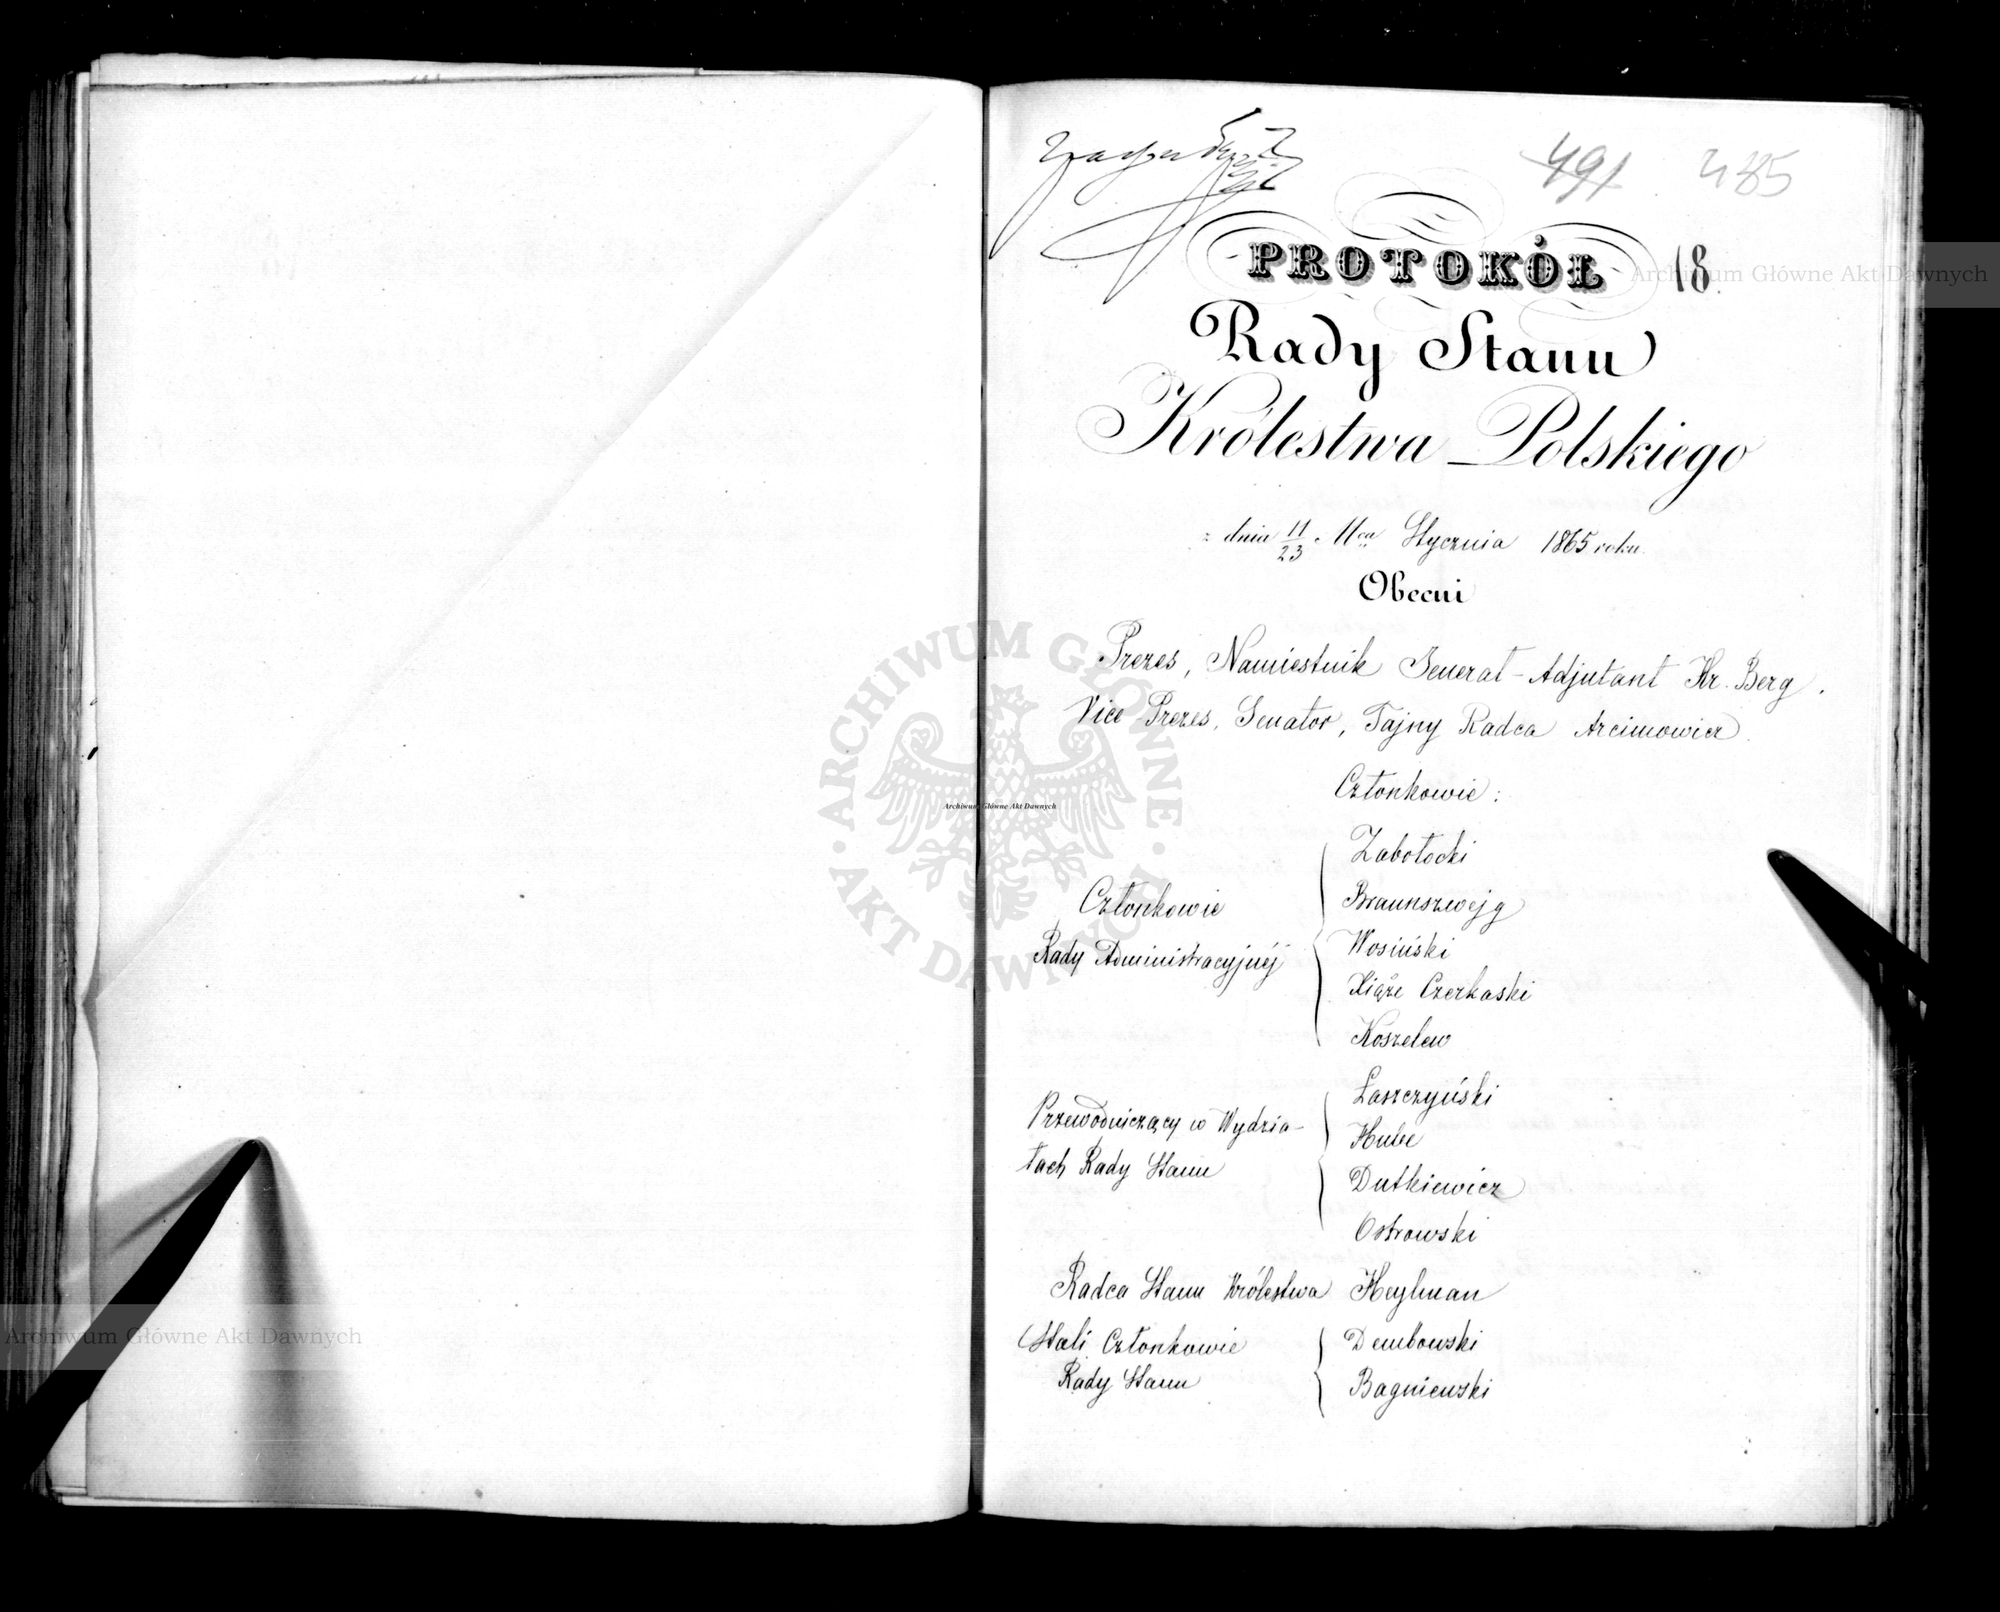 491 485
PROTOKÓŁ 18.
Rady Stanu
Królestwa Polskiego
z dnia 11/23 Mca Stycznia 1865 roku.
Obecni
Prezes, Namiestnik Jenerał-Adjutant Hr. Berg.
Vice-Prezes, Senator, Tajny Radca Arcimowicz.
Członkowie:
Członkowie
Rady Administracyjnéj
Zabołocki
Braunszwejg
Wosiński
Xiąże Czerkaski
Koszelew
Przewodniczący w Wydzia-
łach Rady Stanu
Łaszczyński
Hube
Dutkiewicz
Ostrowski
Radca Stanu Królestwa Heylman
Stali Członkowie
Rady Stanu
Dembowski
Bagniewski
ARCHIWUM GŁÓWNE · AKT DAWNYCH ·
Archiwum Główne Akt Dawnych
Archiwum Główne Akt Dawnych
Archiwum Główne Akt Dawnych